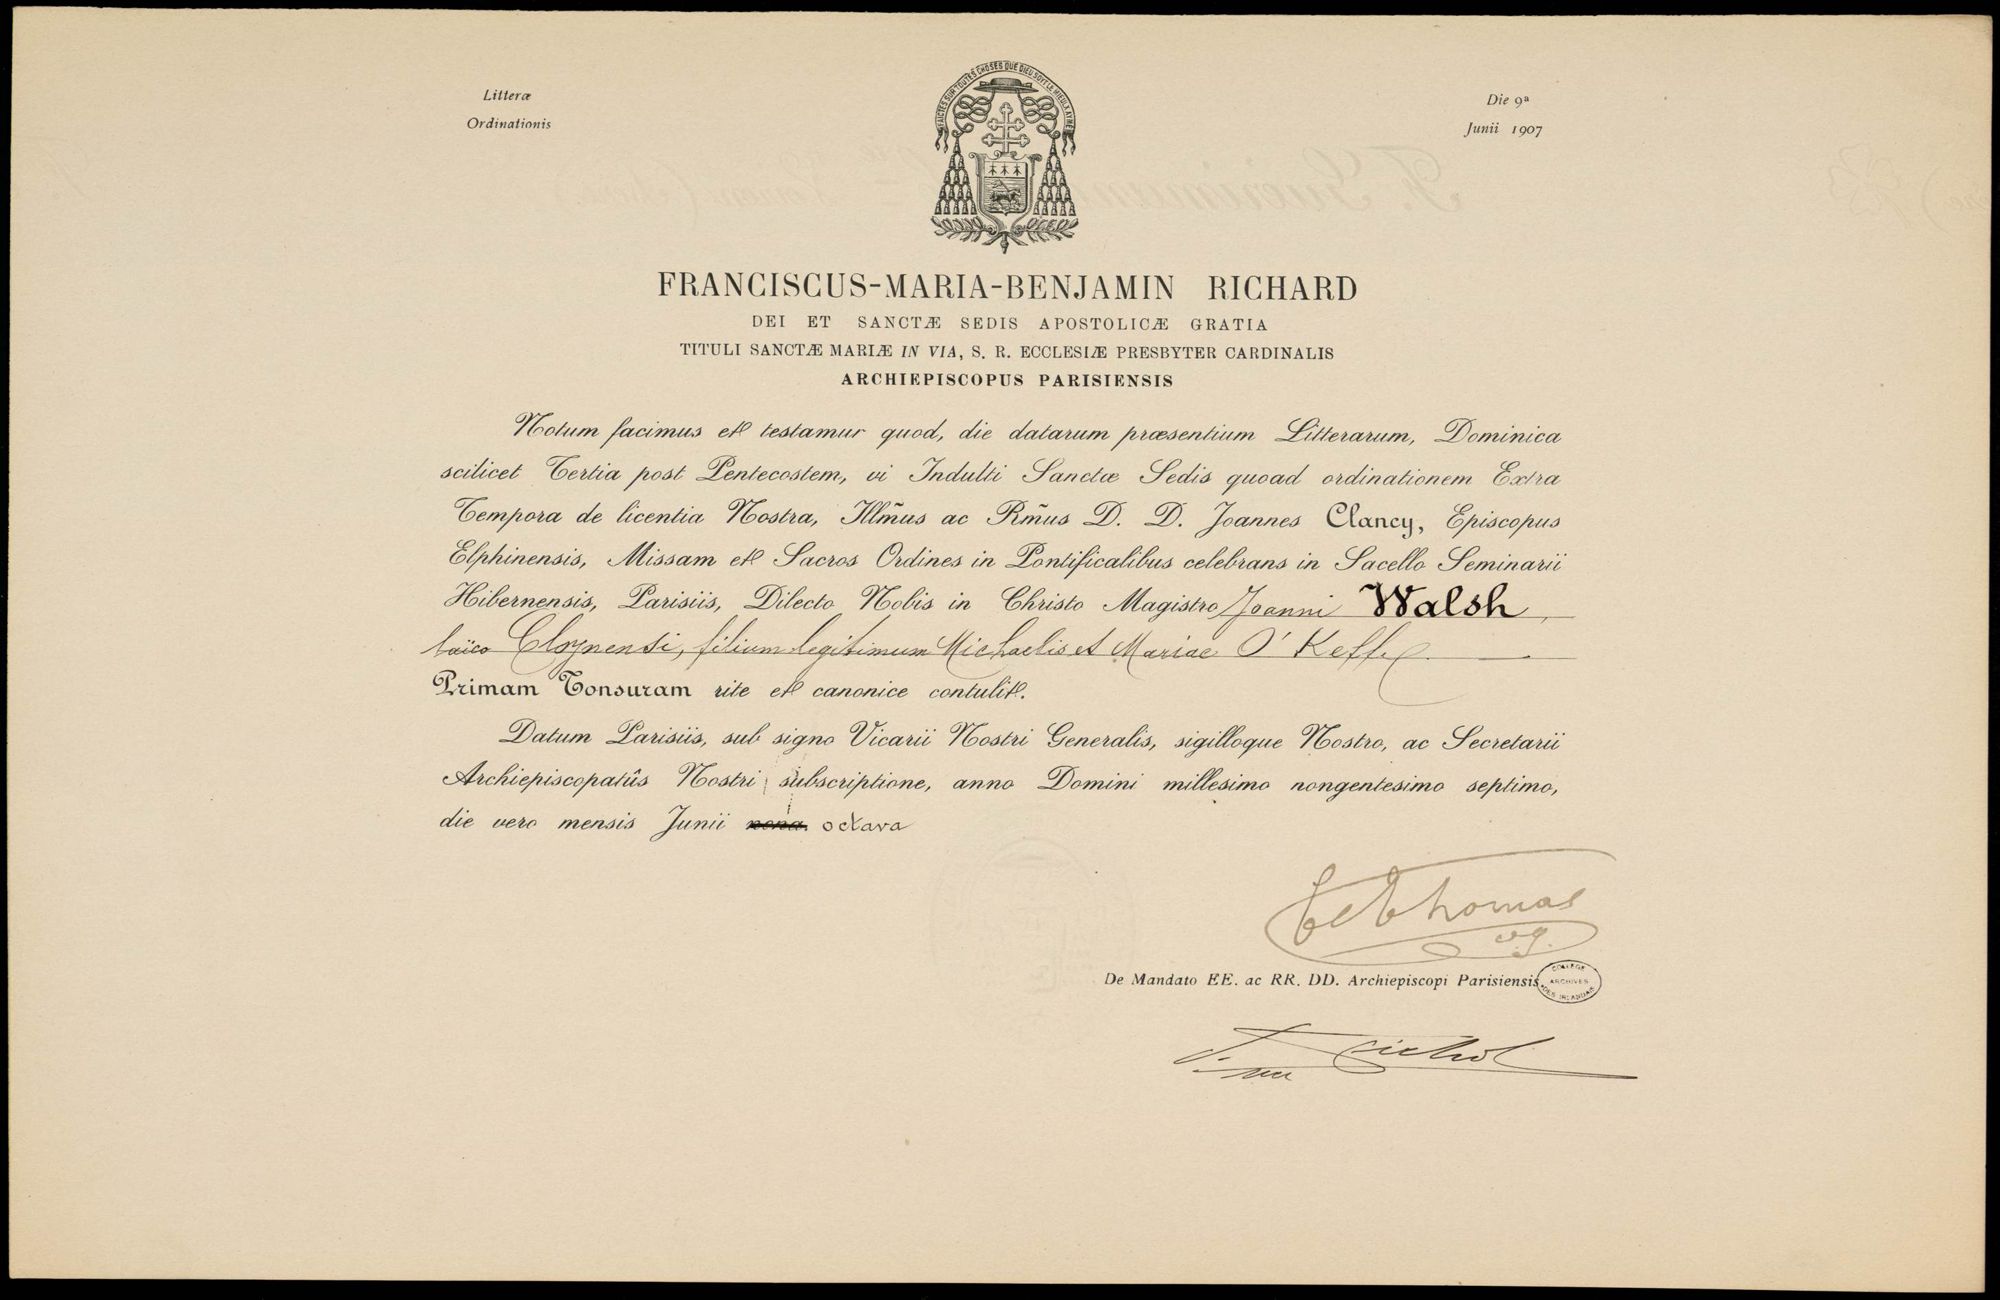 Litteræ
Ordinationis
Die 9ª
Junii 1907
FAICTES SUR TOUTES CHOSES QUE DIEU SOYT LE MIEULX AYMÉ
FRANCISCUS-MARIA-BENJAMIN RICHARD
DEI ET SANCTÆ SEDIS APOSTOLICÆ GRATIA
TITULI SANCTÆ MARIÆ IN VIA, S. R. ECCLESIÆ PRESBYTER CARDINALIS
ARCHIEPISCOPUS PARISIENSIS
Notum facimus et testamur quod, die datarum præsentium Litterarum, Dominica
scilicet Tertia post Pentecostem, vi Indulti Sanctæ Sedis quoad ordinationem Extra
Tempora de licentia Nostra, Illm̃us ac Rm̃us D. D. Joannes Clancy, Episcopus
Elphinensis, Missam et Sacros Ordines in Pontificalibus celebrans in Sacello Seminarii
Hibernensis, Parisiis, Dilecto Nobis in Christo Magistro Joanni Walsh,
laïco Cloynensi, filium legitimum Michaelis et Mariae O'Keffe
Primam Tonsuram rite et canonice contulit.
Datum Parisiis, sub signo Vicarii Nostri Generalis, sigilloque Nostro, ac Secretarii
Archiepiscopatûs Nostri subscriptione, anno Domini millesimo nongentesimo septimo,
die vero mensis Junii nona octava
Thomas
vg.
De Mandato EE. ac RR. DD. Archiepiscopi Parisiensis.
COLLEGE
ARCHIVES
DES IRLANDAIS